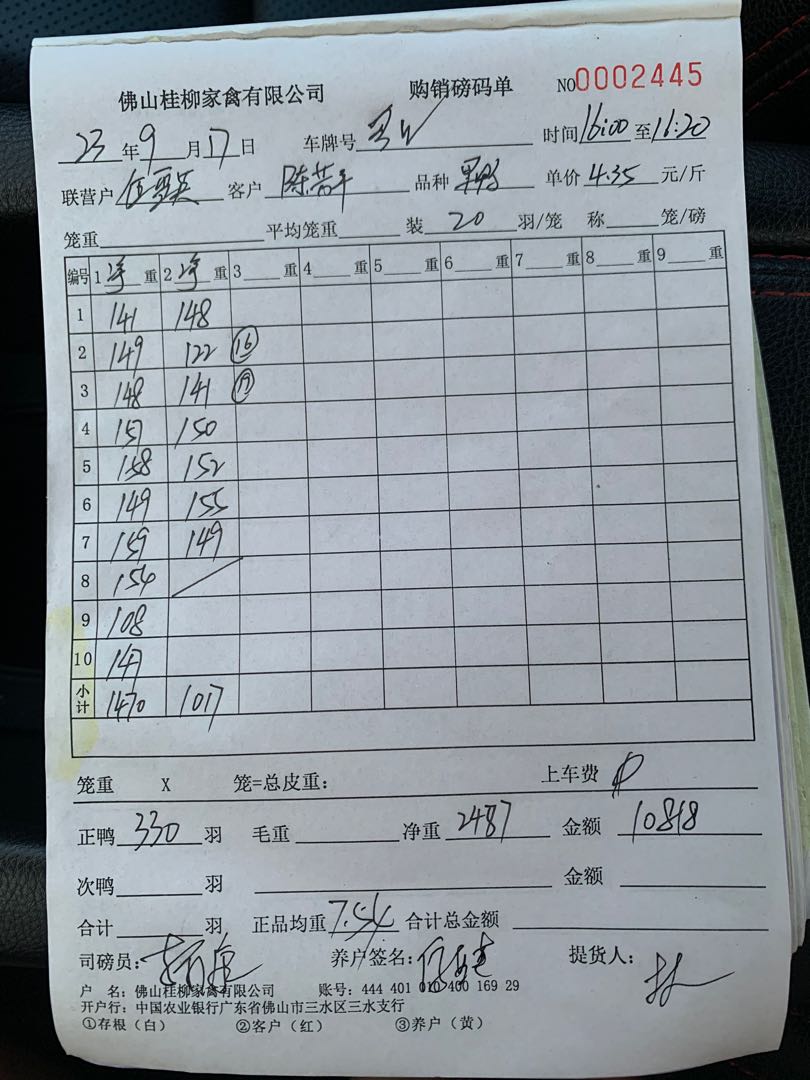 佛山桂柳家禽有限公司 购销磅码单 NO0002445
23年9月17日 车牌号 时间16:00至16:20
联营户 客户 品种 单价4.35元/斤
笼重 平均笼重 装20羽/笼 称 笼/磅
编号 1净重 2净重 3 重 4 重 5 重 6 重 7 重 8 重 9 重
1 141 148
2 149 122 ⑯
3 148 141 ⑲
4 157 150
5 158 152
6 149 155
7 159 149
8 154
9 108
10 147
小计 1470 1017
笼重 X 笼=总皮重: 上车费
正鸭330羽 毛重 净重2487 金额10818
次鸭 羽 金额
合计 羽 正品均重7.54 合计总金额
司磅员: 养户签名: 提货人:
户 名:佛山桂柳家禽有限公司 账号:444 401 010 400 169 29
开户行:中国农业银行广东省佛山市三水区三水支行
①存根(白) ②客户(红) ③养户(黄)